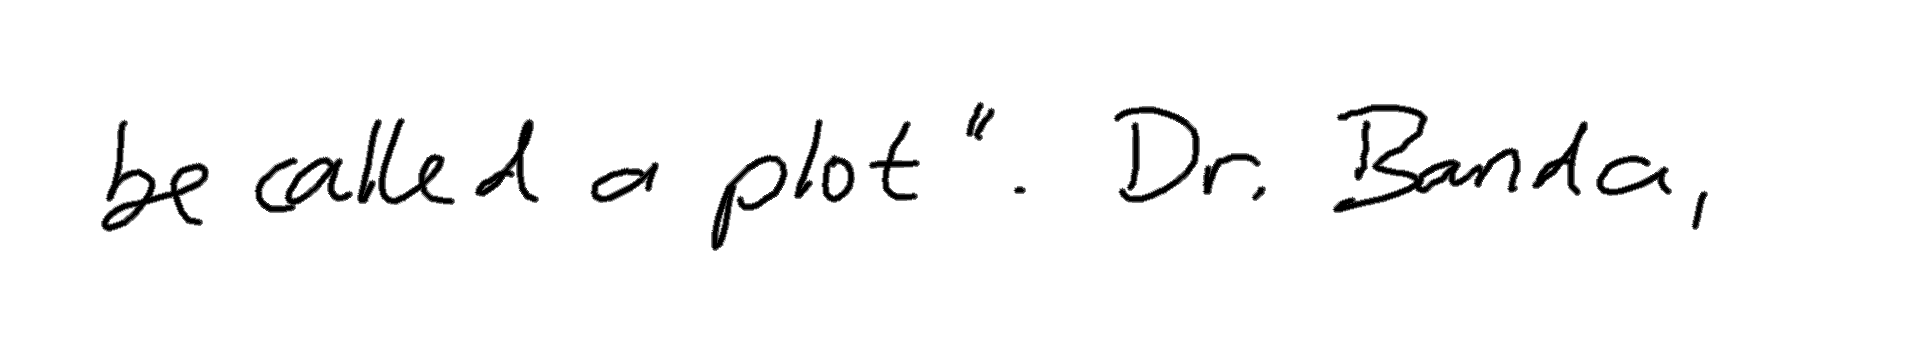 be called a plot". Dr. Banda,